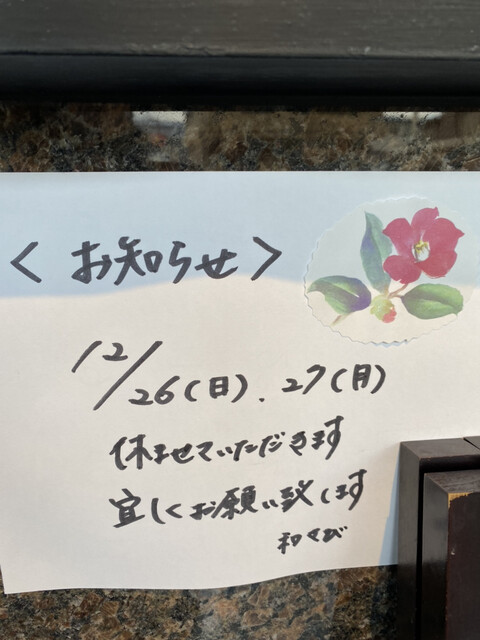 <お知らせ>
12/26(日).27(月)
休ませていただきます
宜しくお願い致します
和くび